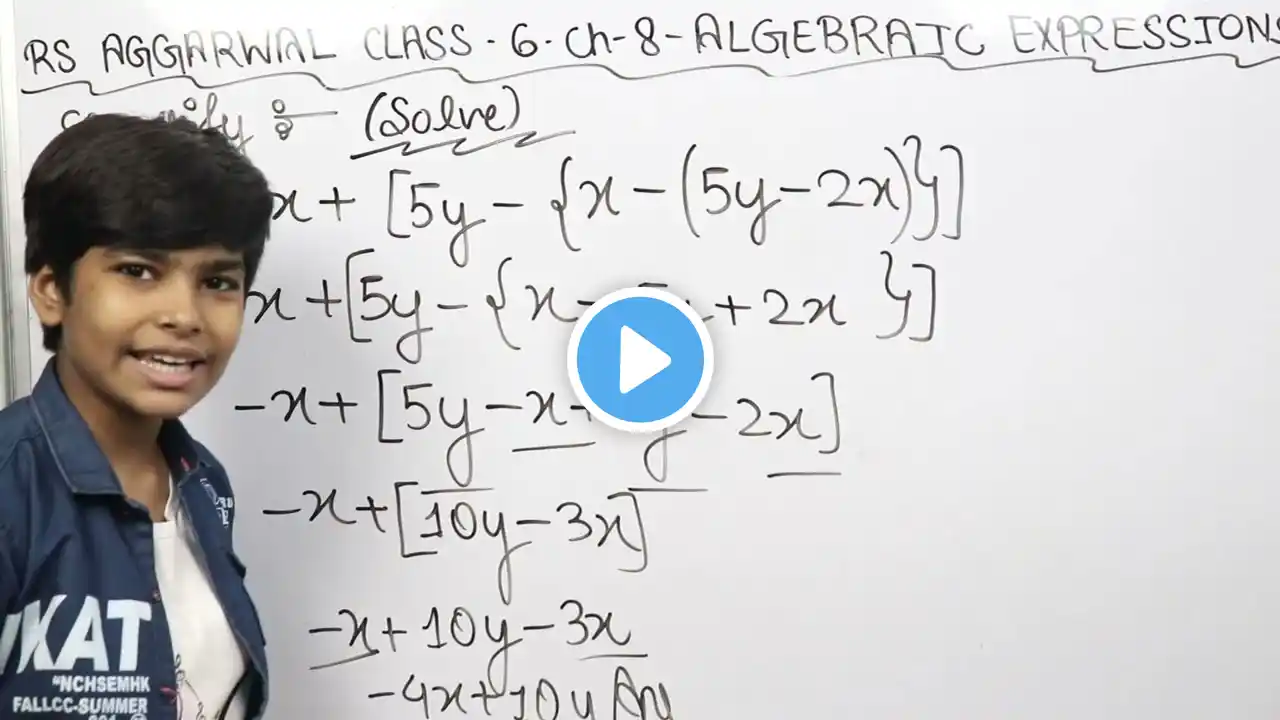 RS AGGARWAL CLASS-6-Ch-8-ALGEBRAIC EXPRESSIONS
(Solve)
x + [5y - {x - (5y - 2x)}]
x + [5y - {x - 5y + 2x }]
-x + [5y - x + y - 2x]
-x + [10y - 3x]
-x + 10y - 3x
-4x + 10y
KAT
"NCHSEMHK
FALLCC-SUMMER